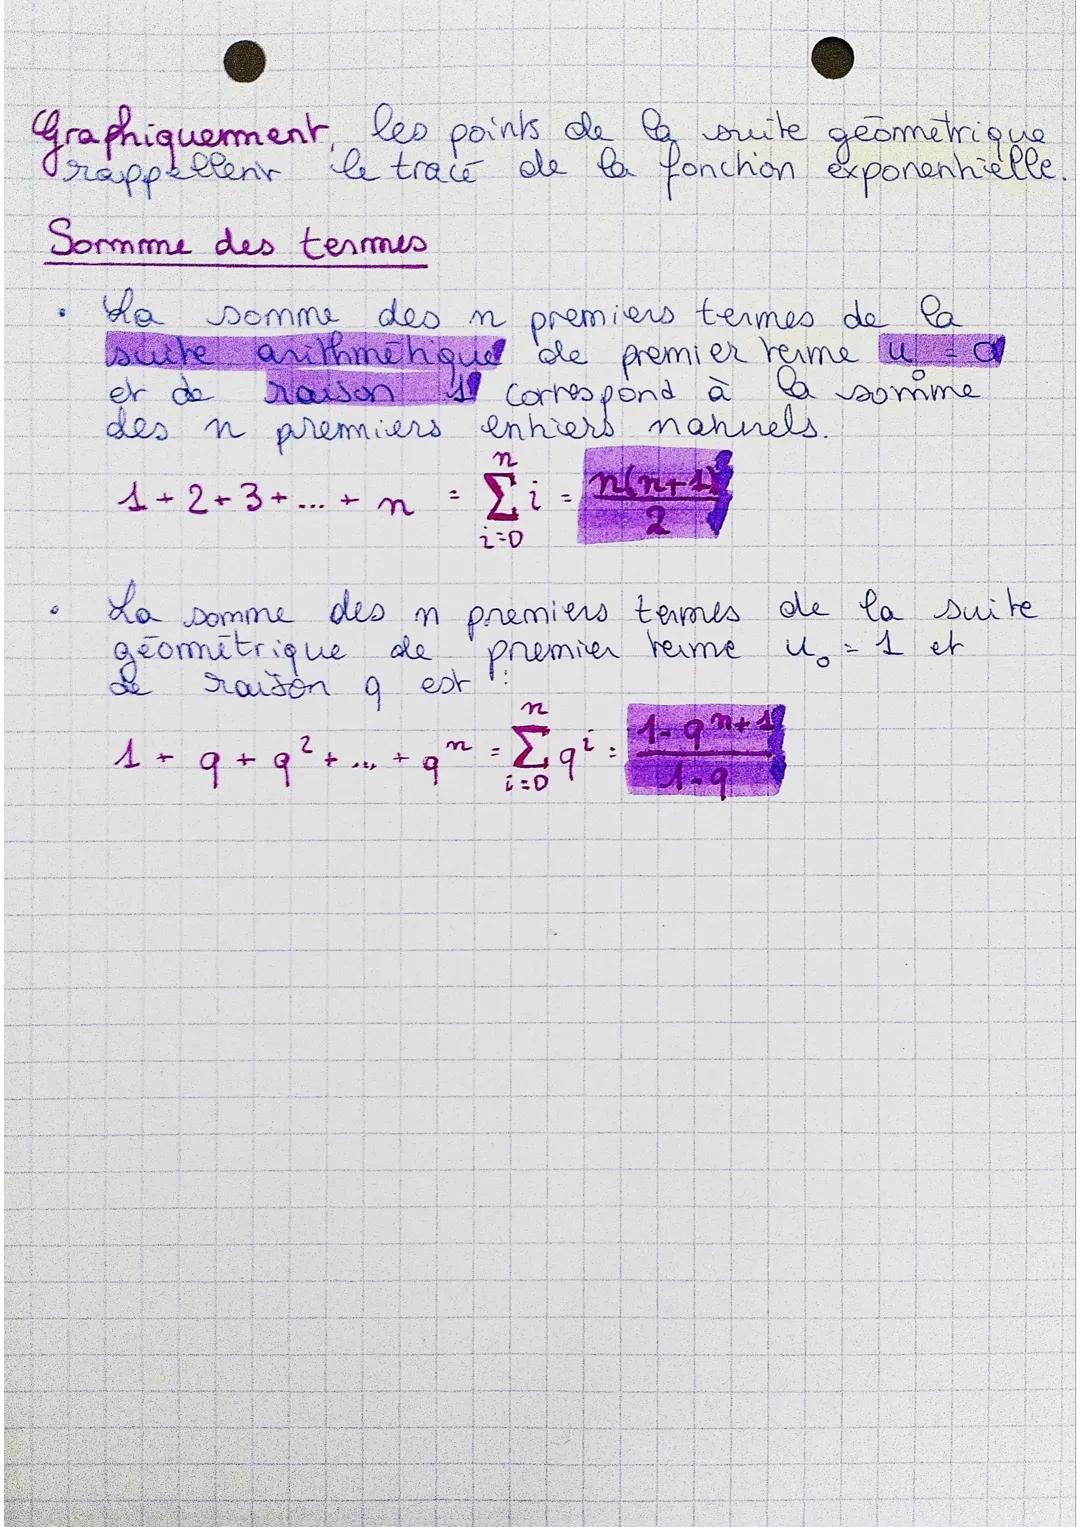 Graphiquement, les points de la suite géométrique
rappellent le tracé de la fonction exponentielle.
Somme des termes
• La somme des n premiers termes de la
suite arithmétique de premier terme u₀ = 0
et de raison 1 correspond à la somme
des n premiers entiers naturels.
1 + 2 + 3 + ... + n = \sum_{i=0}^{n} i = \frac{n(n+1)}{2}
• La somme des n premiers termes de la suite
géométrique de premier terme u₀ = 1 et
de raison q est :
1 + q + q² + ... + qⁿ = \sum_{i=0}^{n} qⁱ = \frac{1-q^{n+1}}{1-q}